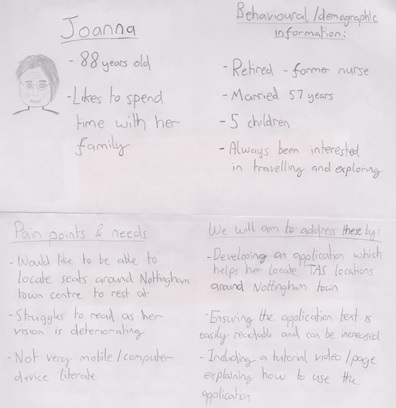 Joanna
- 88 years old
- Likes to spend
time with her
family
Behavioural/demographic
information:
- Retired - former nurse
- Married 57 years
- 5 children
- Always been interested
in travelling and exploring
Pain points & needs
- Would like to be able to
locate seats around Nottingham
town centre to rest at
- Struggles to read as her
vision is deteriorating
- Not very mobile/computer
device literate
We will aim to address these by:
- Developing an application which
helps her locate TAS locations
around Nottingham town
- Ensuring the application text is
easily readable and can be increased
- Including a tutorial video/page
explaining how to use the
application